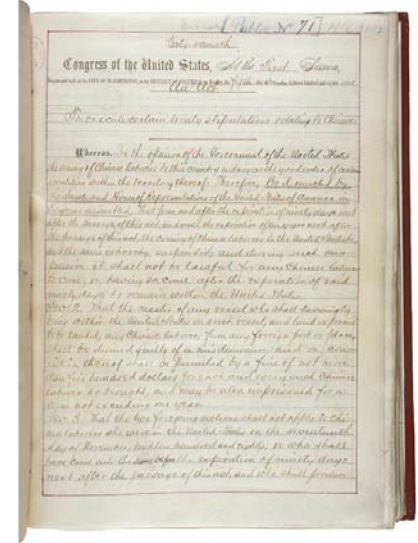 [Public No 71]
Forty-seventh
Congress of the United States, At the First Session,
Begun and held at the CITY OF WASHINGTON, in the DISTRICT OF COLUMBIA, on Monday the fifth day of December, eighteen hundred and eighty-one
An Act
To execute certain treaty stipulations relating to Chinese.
Whereas, In the opinion of the Government of the United States
the coming of Chinese laborers to this country endangers the good order of certain
localities within the territory thereof: Therefore, Be it enacted by
the Senate and House of Representatives of the United States of America in
Congress assembled, That from and after the expiration of ninety days next
after the passage of this act, and until the expiration of ten years next after
the passage of this act, the coming of Chinese laborers to the United States be,
and the same is hereby, suspended; and during such sus-
pension it shall not be lawful for any Chinese laborer
to come, or, having so come after the expiration of said
ninety days, to remain within the United States.
Sec. 2. That the master of any vessel who shall knowingly
bring within the United States on such vessel, and land or permit
to be landed, any Chinese laborer, from any foreign port or place,
shall be deemed guilty of a misdemeanor, and on con-
viction thereof shall be punished by a fine of not more
than five hundred dollars for each and every such Chinese
laborer so brought, and may be also imprisoned for a
term not exceeding one year.
Sec. 3. That the two foregoing sections shall not apply to Chi-
nese laborers who were in the United States on the seventeenth
day of November, eighteen hundred and eighty, or who shall
have come into the same before the expiration of ninety days
next after the passage of this act, and who shall produce